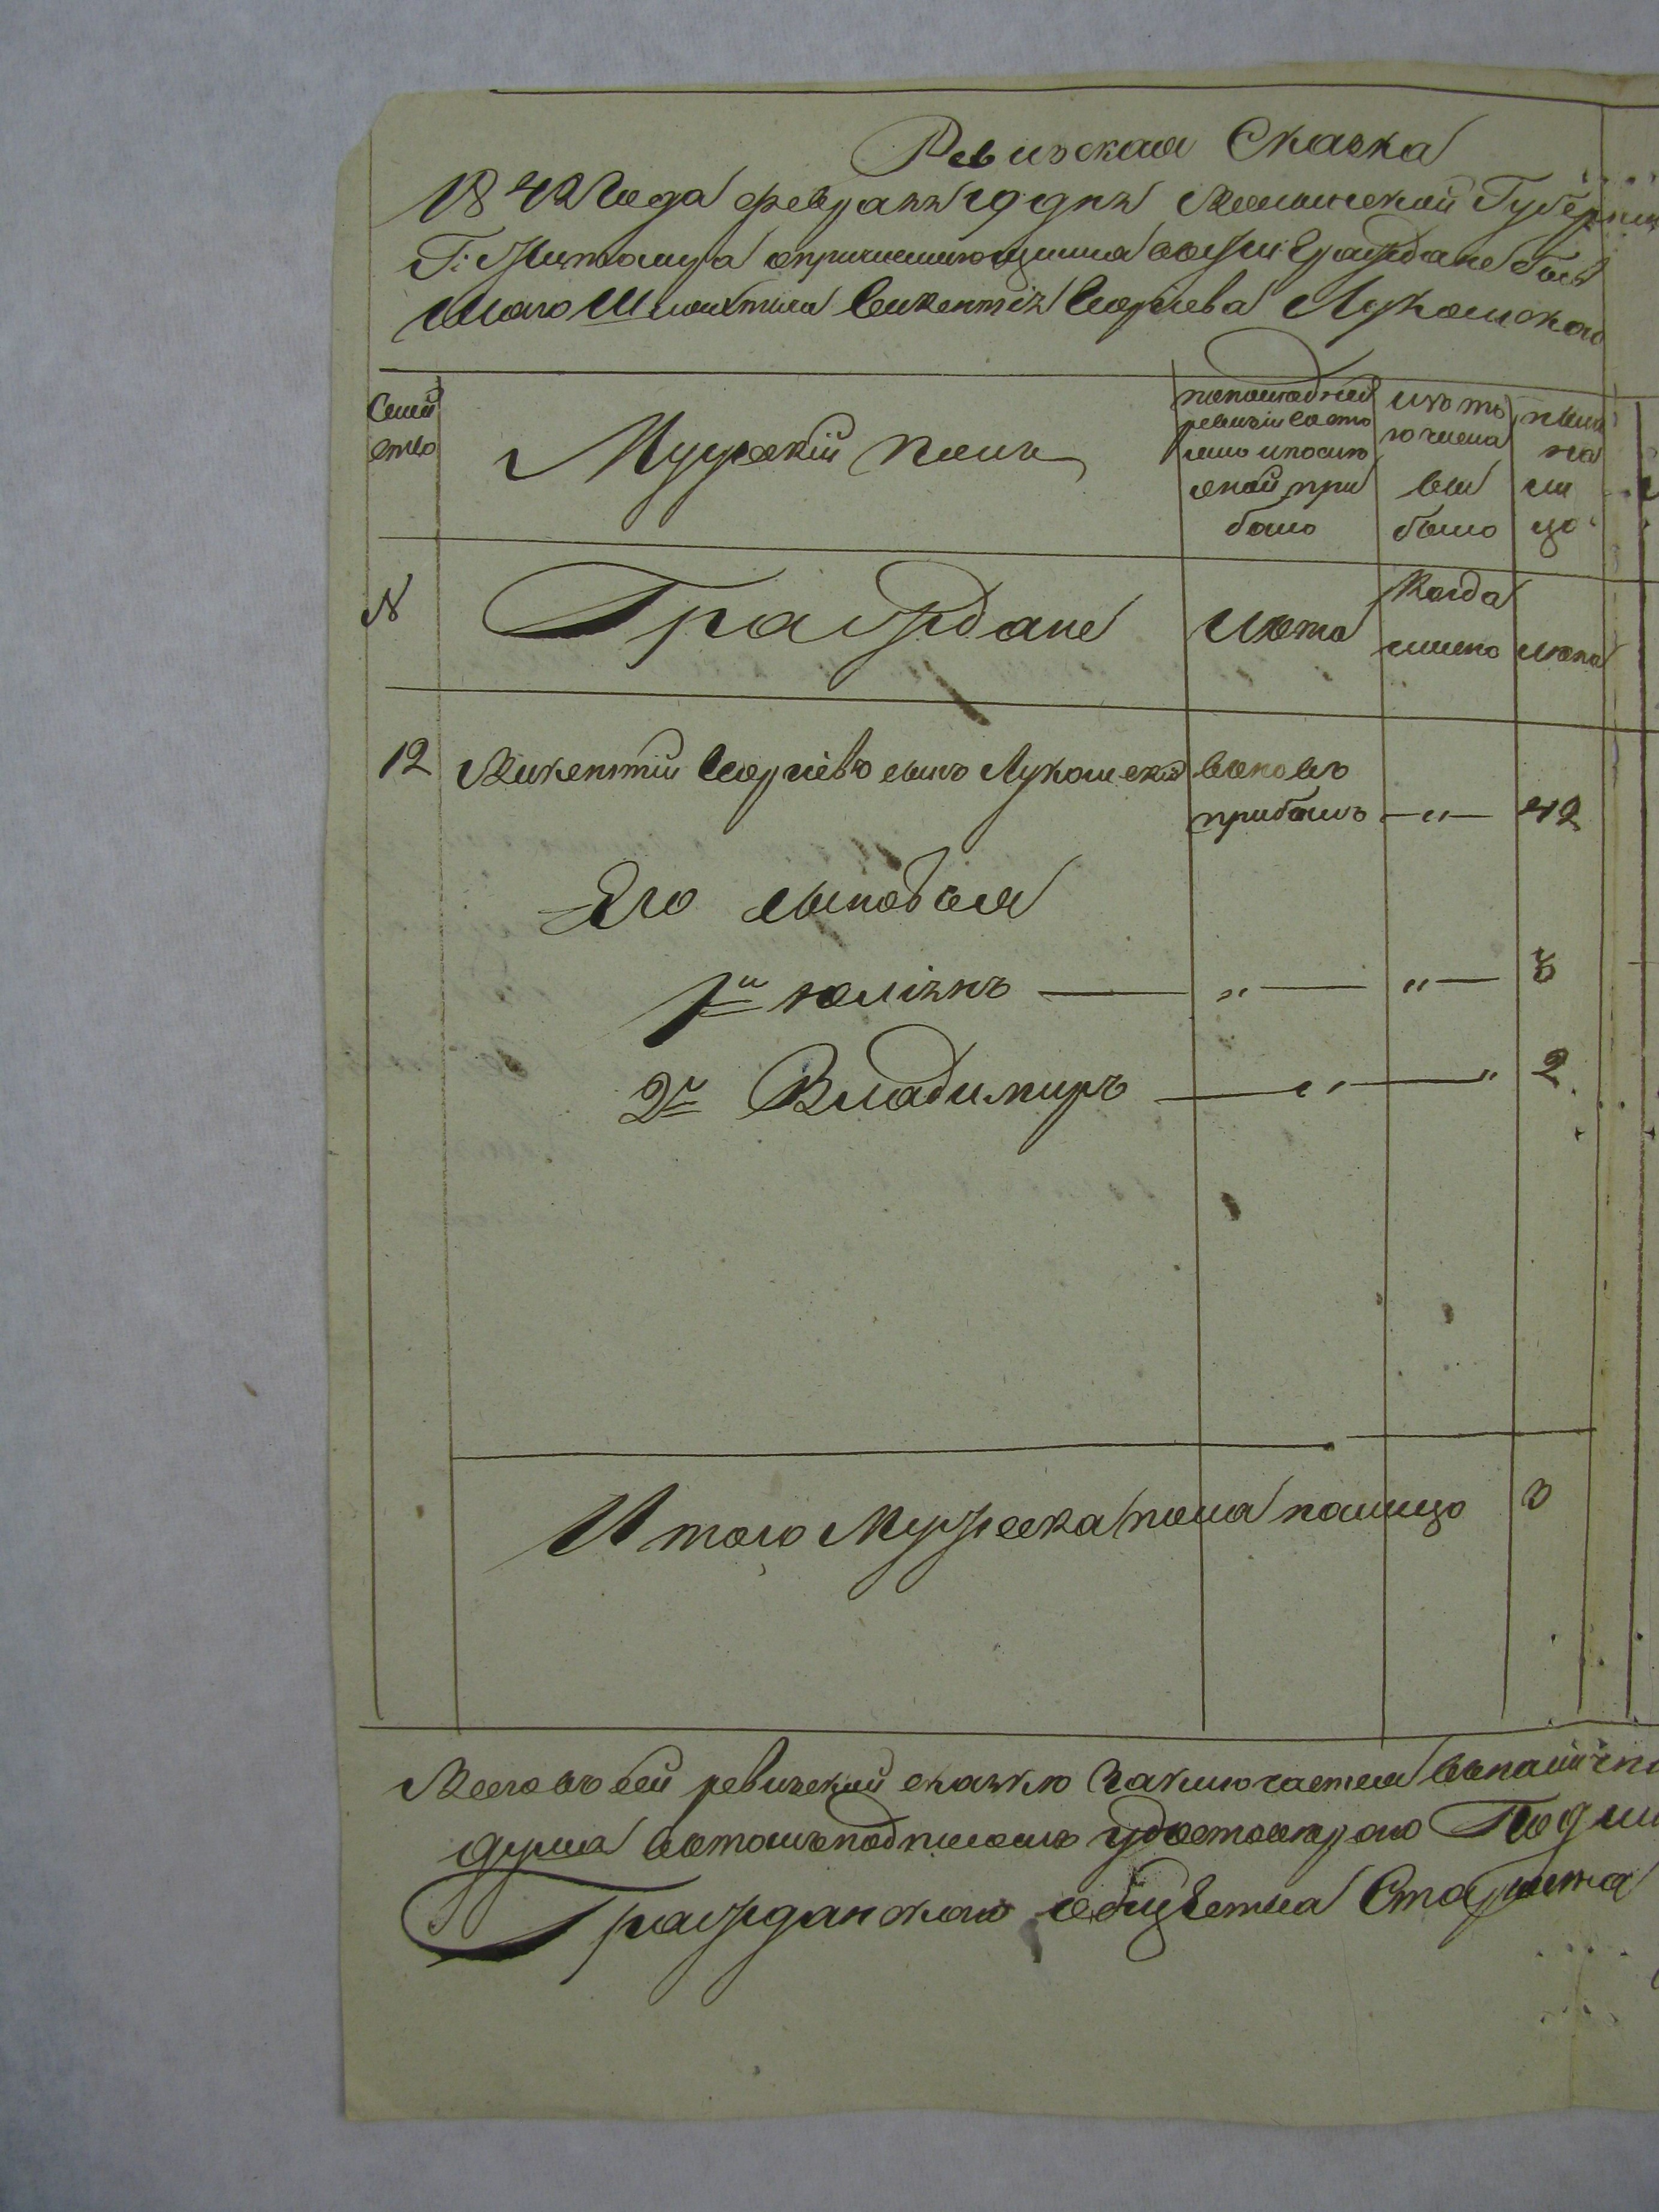 Ревизская Сказка
1842 Года февраля 19 дня Волынской Губерніи
Г: Житомира опричисляющимся в Граждане быв
шаго Шляхтича Викентія Георгіева Лукомскаго
Семей
ство
Мужескій полъ
по последней
ревизіи состо
яло и после
оной при
было
изъ то
го числа
вы
было
ныне
на
ли
цо
№
Граждане
лета
Когда
имено
лета
12 Викентій Георгіевъ сынъ Лукомскій вновь
прибылъ — „ — 42
Его сыновья
1й Юліянъ — „ — „ — 3
2й Владимиръ — „ — „ 2
Итого Мужеска пола на лицо 3
Всего въ сей ревизской сказке заключается
душа в томъ подписомъ удостоверяю
Гражданскаго общества Староста